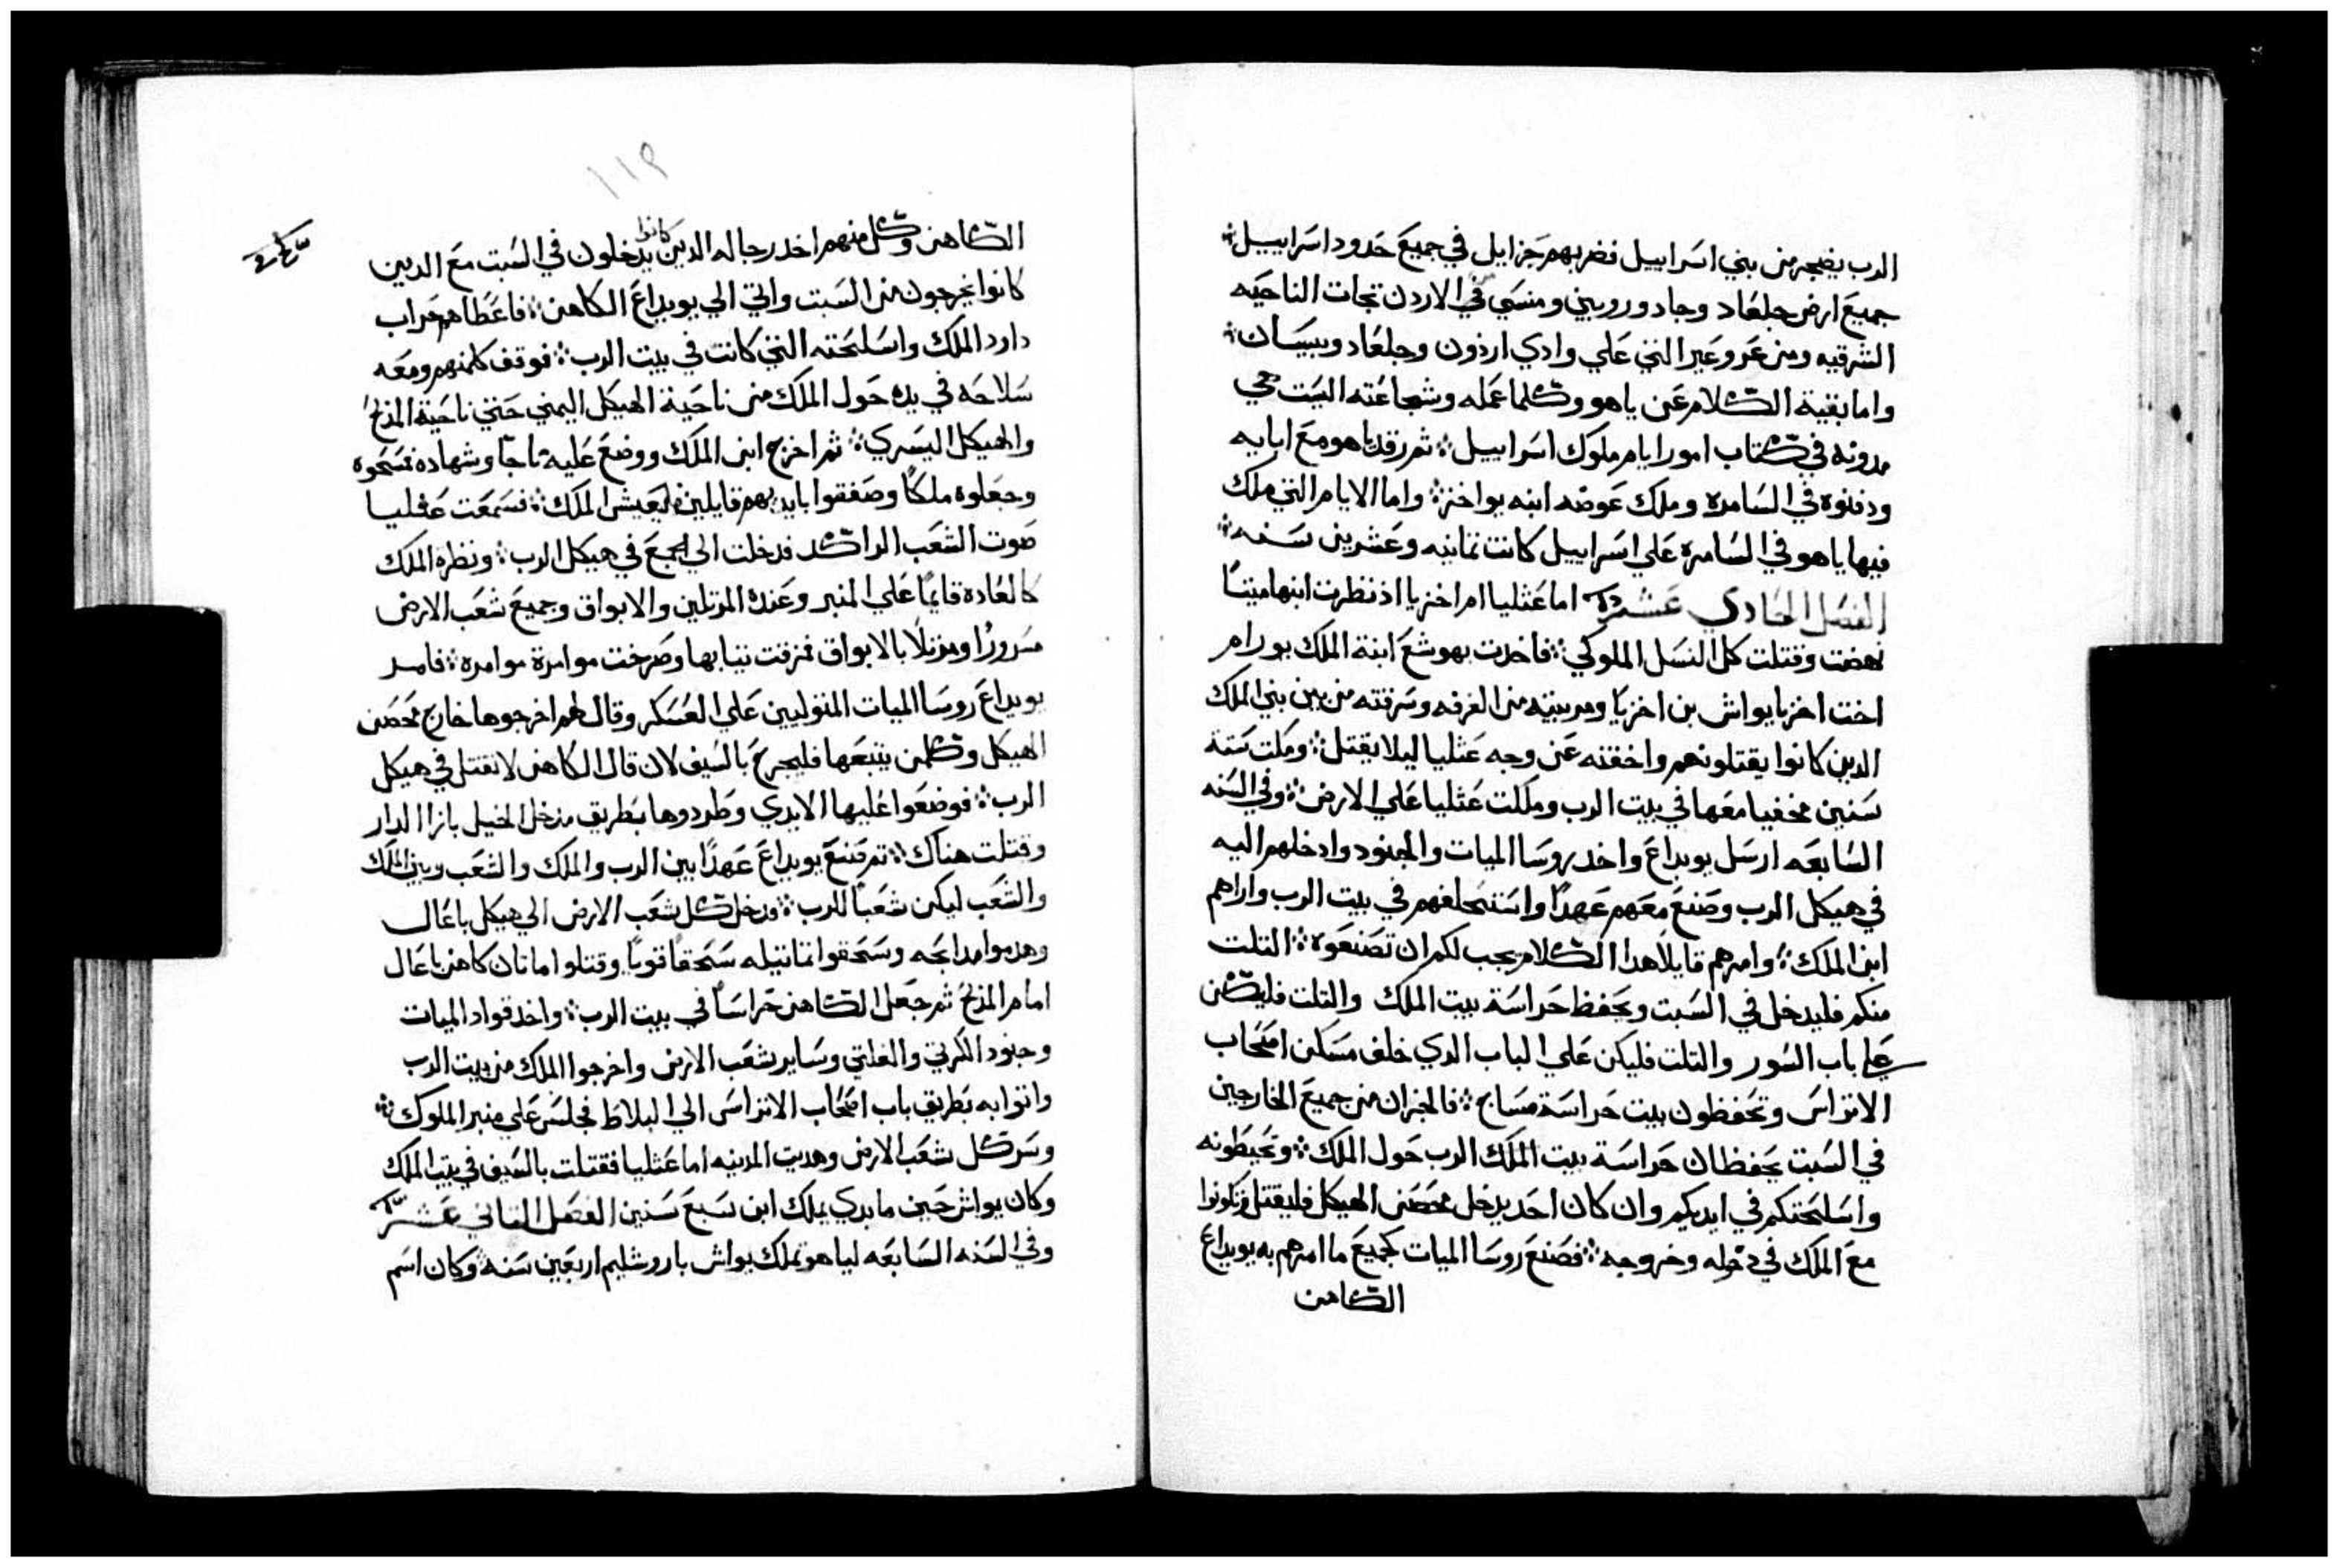 الرب يضجر من بني اسراييل فضربهم حزايل في جميع حدود اسراييل
جميع ارض جلعاد وجاد وروبين ومنسي في الاردن تجات الناحيه
الشرقيه ومن عروعير التي علي وادي ارذون وجلعاد وبيسان
واما بقية الكلام عن ياهو وكلما عمله وشجاعته اليست هي
مدونه في كتاب امور ايام ملوك اسراييل ثم رقد ياهو مع ابايه
ودفنوه في السامره وملك عوضه ابنه يواخز واما الايام التي ملك
فيها ياهو في السامرة علي اسراييل كانت تمانيه وعشرين سنه
الفصل الحادي عشر اما عثليا ام اخزيا اذ نظرت ابنها ميتًا
نهضت وقتلت كل النسل الملوكي فاخدت يهوشع ابنة الملك يورام
اخت اخزيا يواش بن اخزيا ومربيته من الغرفه وسرقته من بين بني الملك
الدين كانوا يقتلونهم واخفته عن وجه عثليا ليلا يقتل ومكت ستة
سنين مخفيا معها في بيت الرب وملكت عثليا علي الارض وفي السنه
السابعه ارسل يويداع واخد روسا الميات والجنود وادخلهم اليه
في هيكل الرب وصنع معهم عهدًا واستحلفهم في بيت الرب واراهم
ابن الملك وامرهم قايلًا هدا الكلام يجب لكم ان تصنعوه التلت
منكم فليدخل في السبت ويحفظ حراسة بيت الملك والتلت فليكن
علي باب السور والتلت فليكن علي الباب الدي خلف مسكن اصحاب
الاتراس وتحفظون بيت حراسة مسايح فالجزان من جميع الخارجين
في السبت يحفظان حراسة بيت الملك الرب حول الملك وتحيطونه
واسلحتكم في ايديكم وان كان احد يدخل محصن الهيكل فليقتل وتكونوا
مع الملك في دخوله وخروجه فصنع روسا الميات كجميع ما امرهم به يويداع
الكاهن
١١٩
الكاهن وكل منهم اخد رجاله الدين كانوا يدخلون في السبت مع الدين
كانوا يخرجون من السبت واتي الي يويداع الكاهن فاعطاهم حراب
داود الملك واسلحته التي كانت في بيت الرب فوقف كل منهم ومعه
سلاحه في يده حول الملك من ناحية الهيكل اليمني حتي ناحية المذبح
والهيكل اليسري ثم اخرج ابن الملك ووضع عليه تاجًا وشهاده فمسحوه
وجعلوه ملكًا وصفقوا بايديهم قايلين ليعيش الملك فسمعت عثليا
صوت الشعب الراكد فدخلت الي الجمع في هيكل الرب ونظرة الملك
كالعادة قايمًا علي المنبر وعنده المرتلين والابواق وجميع شعب الارض
مسرورًا ومرتلًا بالابواق فمزقت تيابها وصرخت موامرة موامره فامر
يويداع روسا الميات المتوليين علي العسكر وقال لهم اخرجوها خارج محصن
الهيكل وكلمن يتبعها فليجرح بالسيف لان قال الكاهن لا تقتل في هيكل
الرب فوضعوا عليها الايدي وطردوها بطريق مدخل الخيل بازا الدار
وقتلت هناك ثم صنع يويداع عهدًا بين الرب والملك والشعب وبين الملك
والشعب ليكن شعبًا للرب فدخل كل شعب الارض الي هيكل باعال
وهدموا مدابحه وسحقوا تماتيله سحقًا قويًا وقتلوا ماتان كاهن باعال
امام المذبح ثم جعل الكاهن حراسًا في بيت الرب واخد قواد الميات
وجنود الكريتي والفلتي وساير شعب الارض واخرجوا الملك من بيت الرب
واتوا به بطريق باب اصحاب الاتراس الي البلاط فجلس علي منبر الملوك
وسر كل شعب الارض وهديت المدينه اما عثليا فقتلت بالسيف في بيت الملك
وكان يواش حين ما بدي يملك ابن سبع سنين الفصل التاني عشر
وفي السنه السابعه لياهو تملك يواش باروشليم اربعين سنه وكان اسم